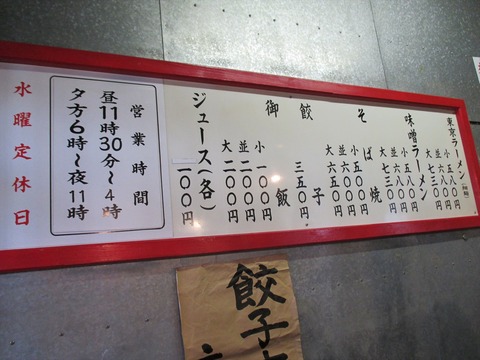 東京ラーメン
小 五五〇円
並 六〇〇円
大 七三〇円
味噌ラーメン
小 五八〇円
並 六八〇円
大 七三〇円
そば焼
小 五〇〇円
並 六〇〇円
大 六五〇円
餃子
三五〇円
御飯
小 一〇〇円
並 二〇〇円
大 二〇〇円
ジュース(各)
一〇〇円
営業時間
昼11時30分〜4時
夕方6時〜夜11時
水曜定休日
餃子